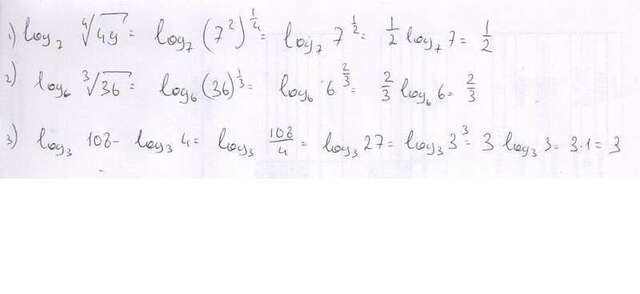 1) log₂ ⁴√49 = log₇ (7²)^¼ = log₇ 7^½ = ½ log₇ 7 = ½
2) log₆ ³√36 = log₆ (36)^⅓ = log₆ 6^⅔ = ⅔ log₆ 6 = ⅔
3) log₃ 108 - log₃ 4 = log₃ 108/4 = log₃ 27 = log₃ 3³ = 3 log₃ 3 = 3·1 = 3